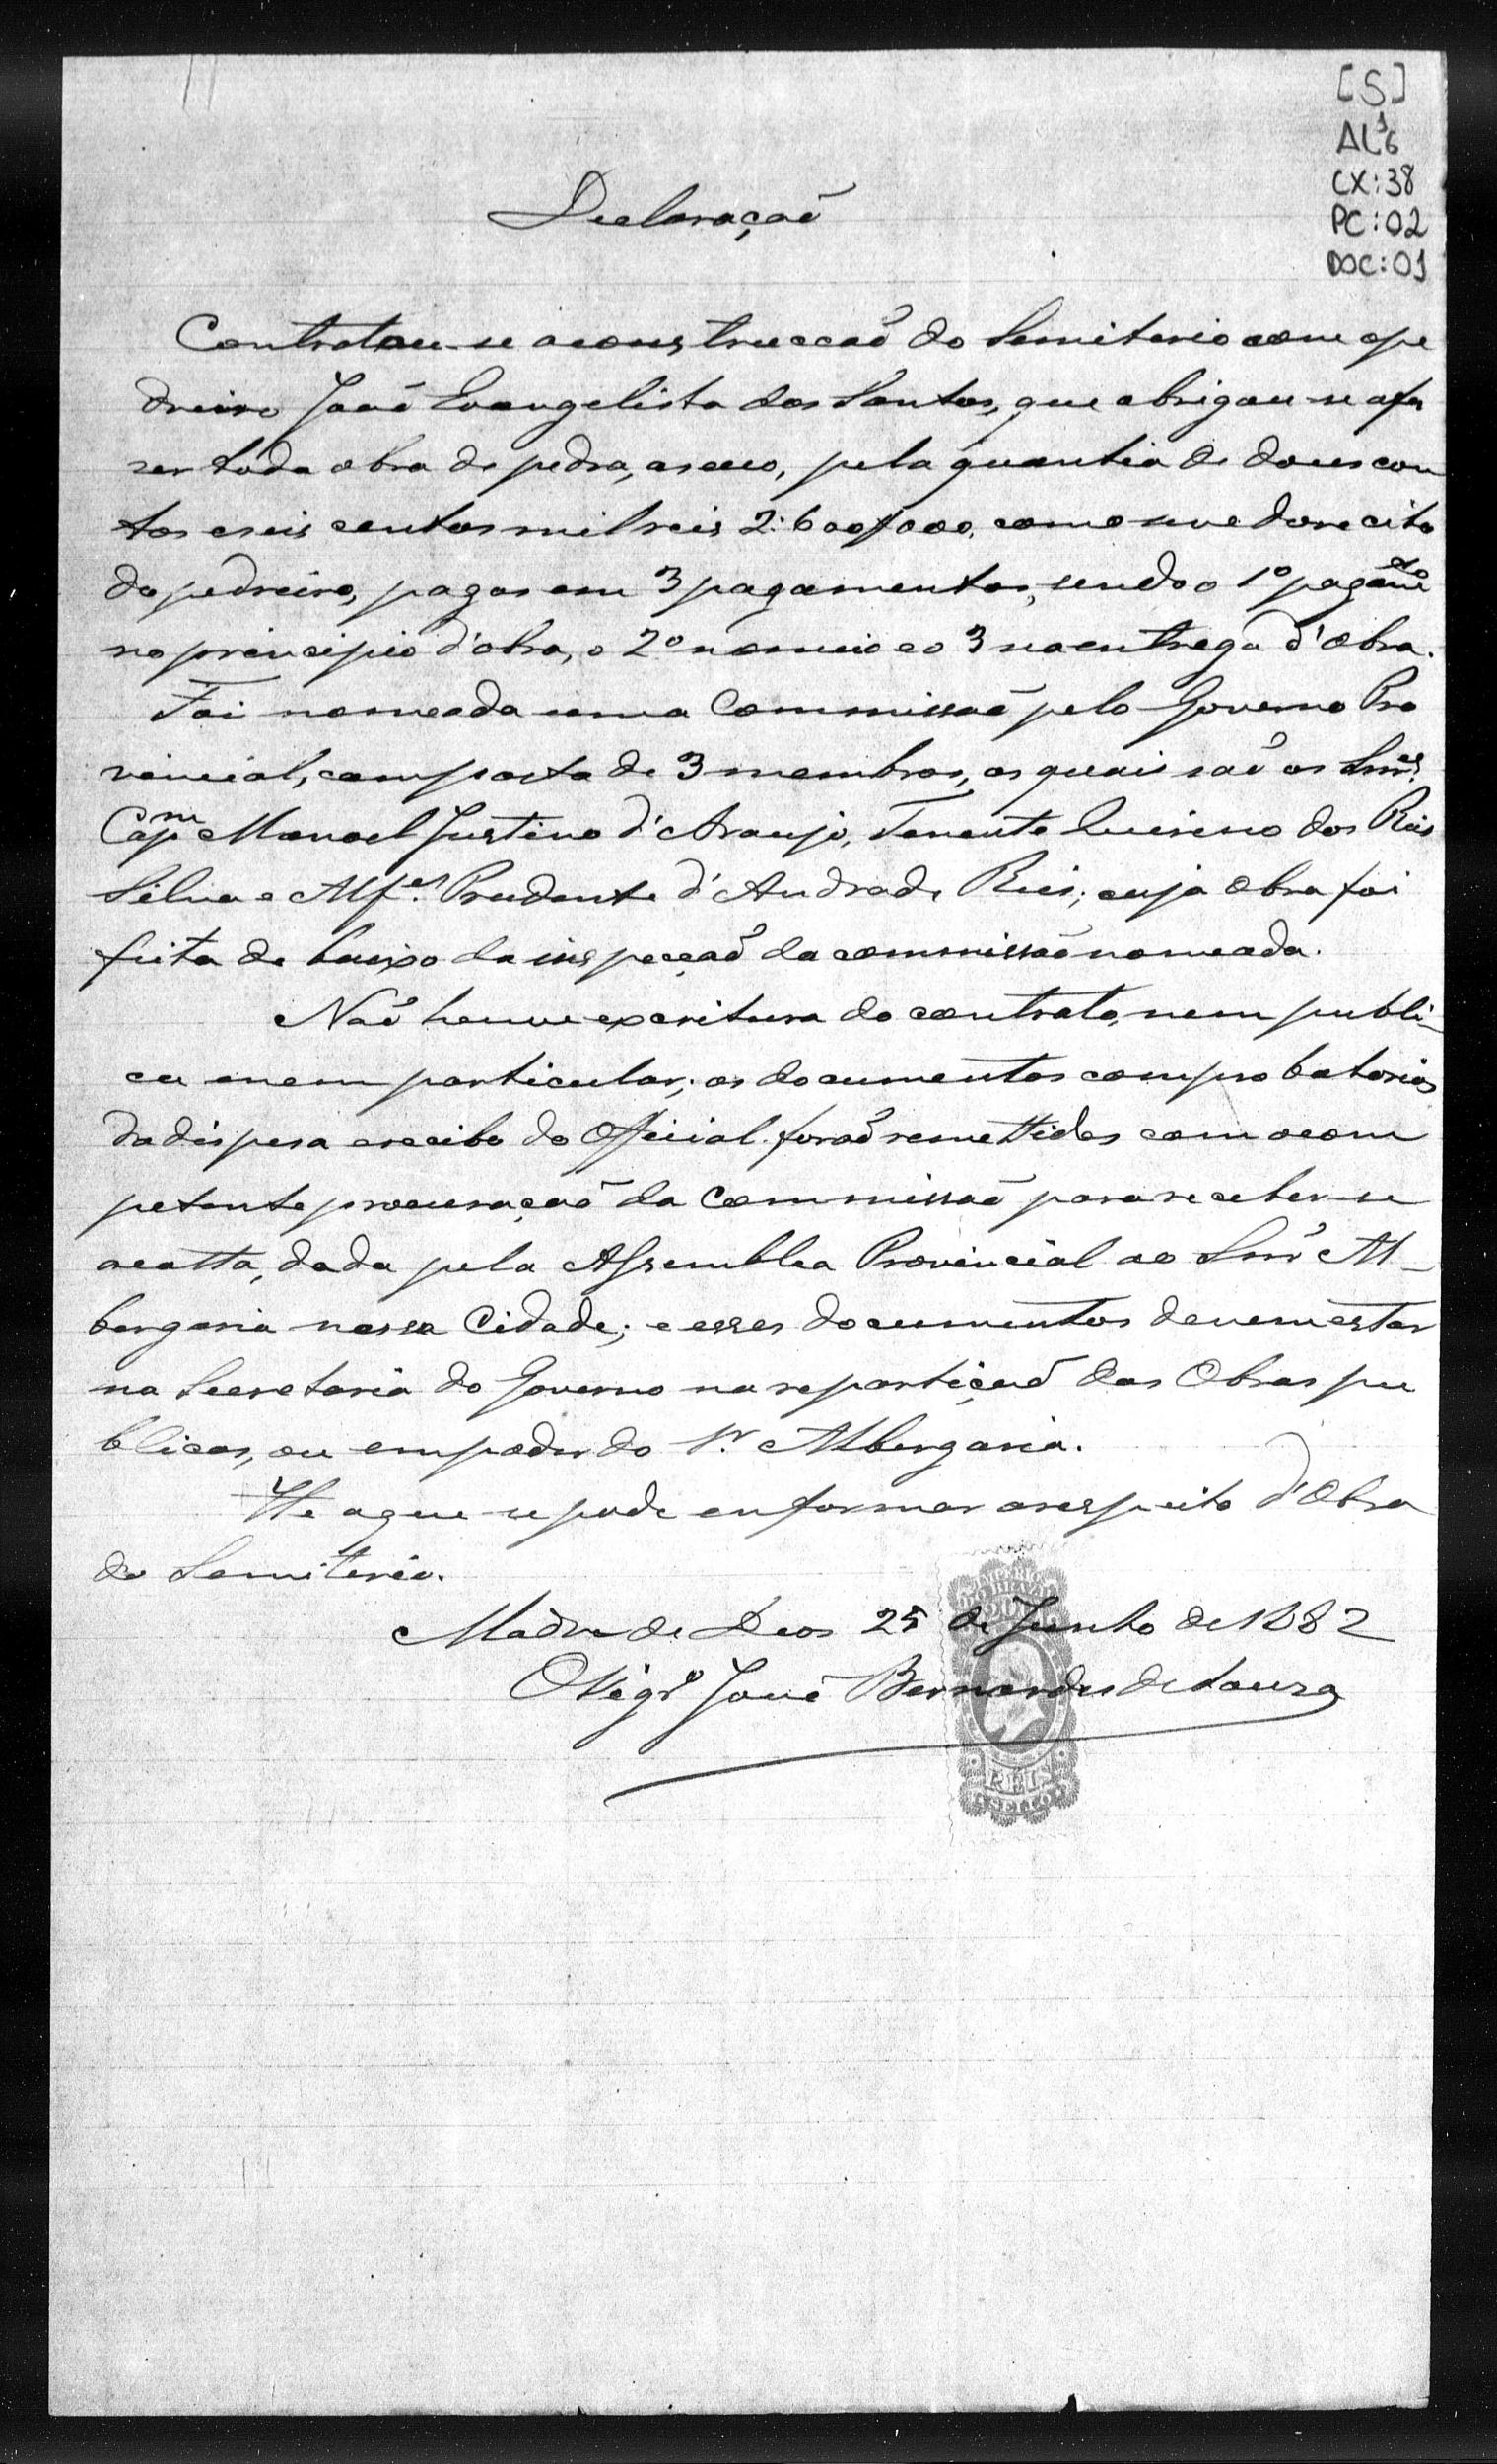 [S]
AL 1/6
CX: 38
PC: 02
DOC: 01
Declaração
Contratou-se a construcção do Semiterio com o pe
dreiro João Evangelista dos Santos, que obrigou-se a fa
ser toda obra de pedra, a seco, pela quantia de dous con
tos e seis centos mil reis 2:600$000, como se ve do recibo
do pedreiro, pagos em 3 pagamentos, sendo o 1º pagam.to
no principio d'obra, o 2º no meio e o 3 na entrega d'obra.
Foi nomeada uma Commissão pelo Governo Pro
vincial, composta de 3 membros, os quais são os Snr.s
Cap.m Manoel Justino d'Araujo, Tenente Quirino dos Reis
Silva e Alf.es Prudente d'Andrade Reis; cuja obra foi
feita de baixo da inspecção da commissão nomeada.
Não houve escritura do contrato, nem publi-
ca e nem particular; os documentos comprobatorios
da dispesa e recibo do Official forão remettidos com a com
petente procuração da Commissão para receber-se
a cotta, dada pela Assemblea Provincial ao Snr Al-
bergaria nessa Cidade; e esses documentos devem estar
na Secretaria do Governo na repartição das Obras pu
blicas, ou em poder do Sr. Albergaria.
He o que se pode enformar a respeito d'Obra
do Semiterio.
Madre de Deos 25 de Junho de 1882
O Vigr.º José Bernardes de Souza
IMPERIO
DO BRAZIL
REIS
SELLO